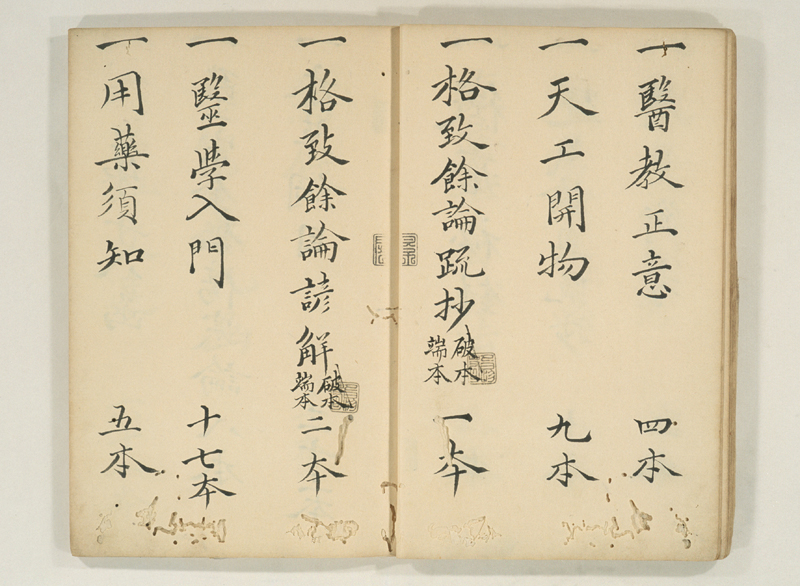 一醫教正意 四本
一天工開物 九本
一格致餘論疏抄 破本 端本 一本
一格致餘論諺解 破本 端本 二本
一醫學入門 十七本
一用藥須知 五本